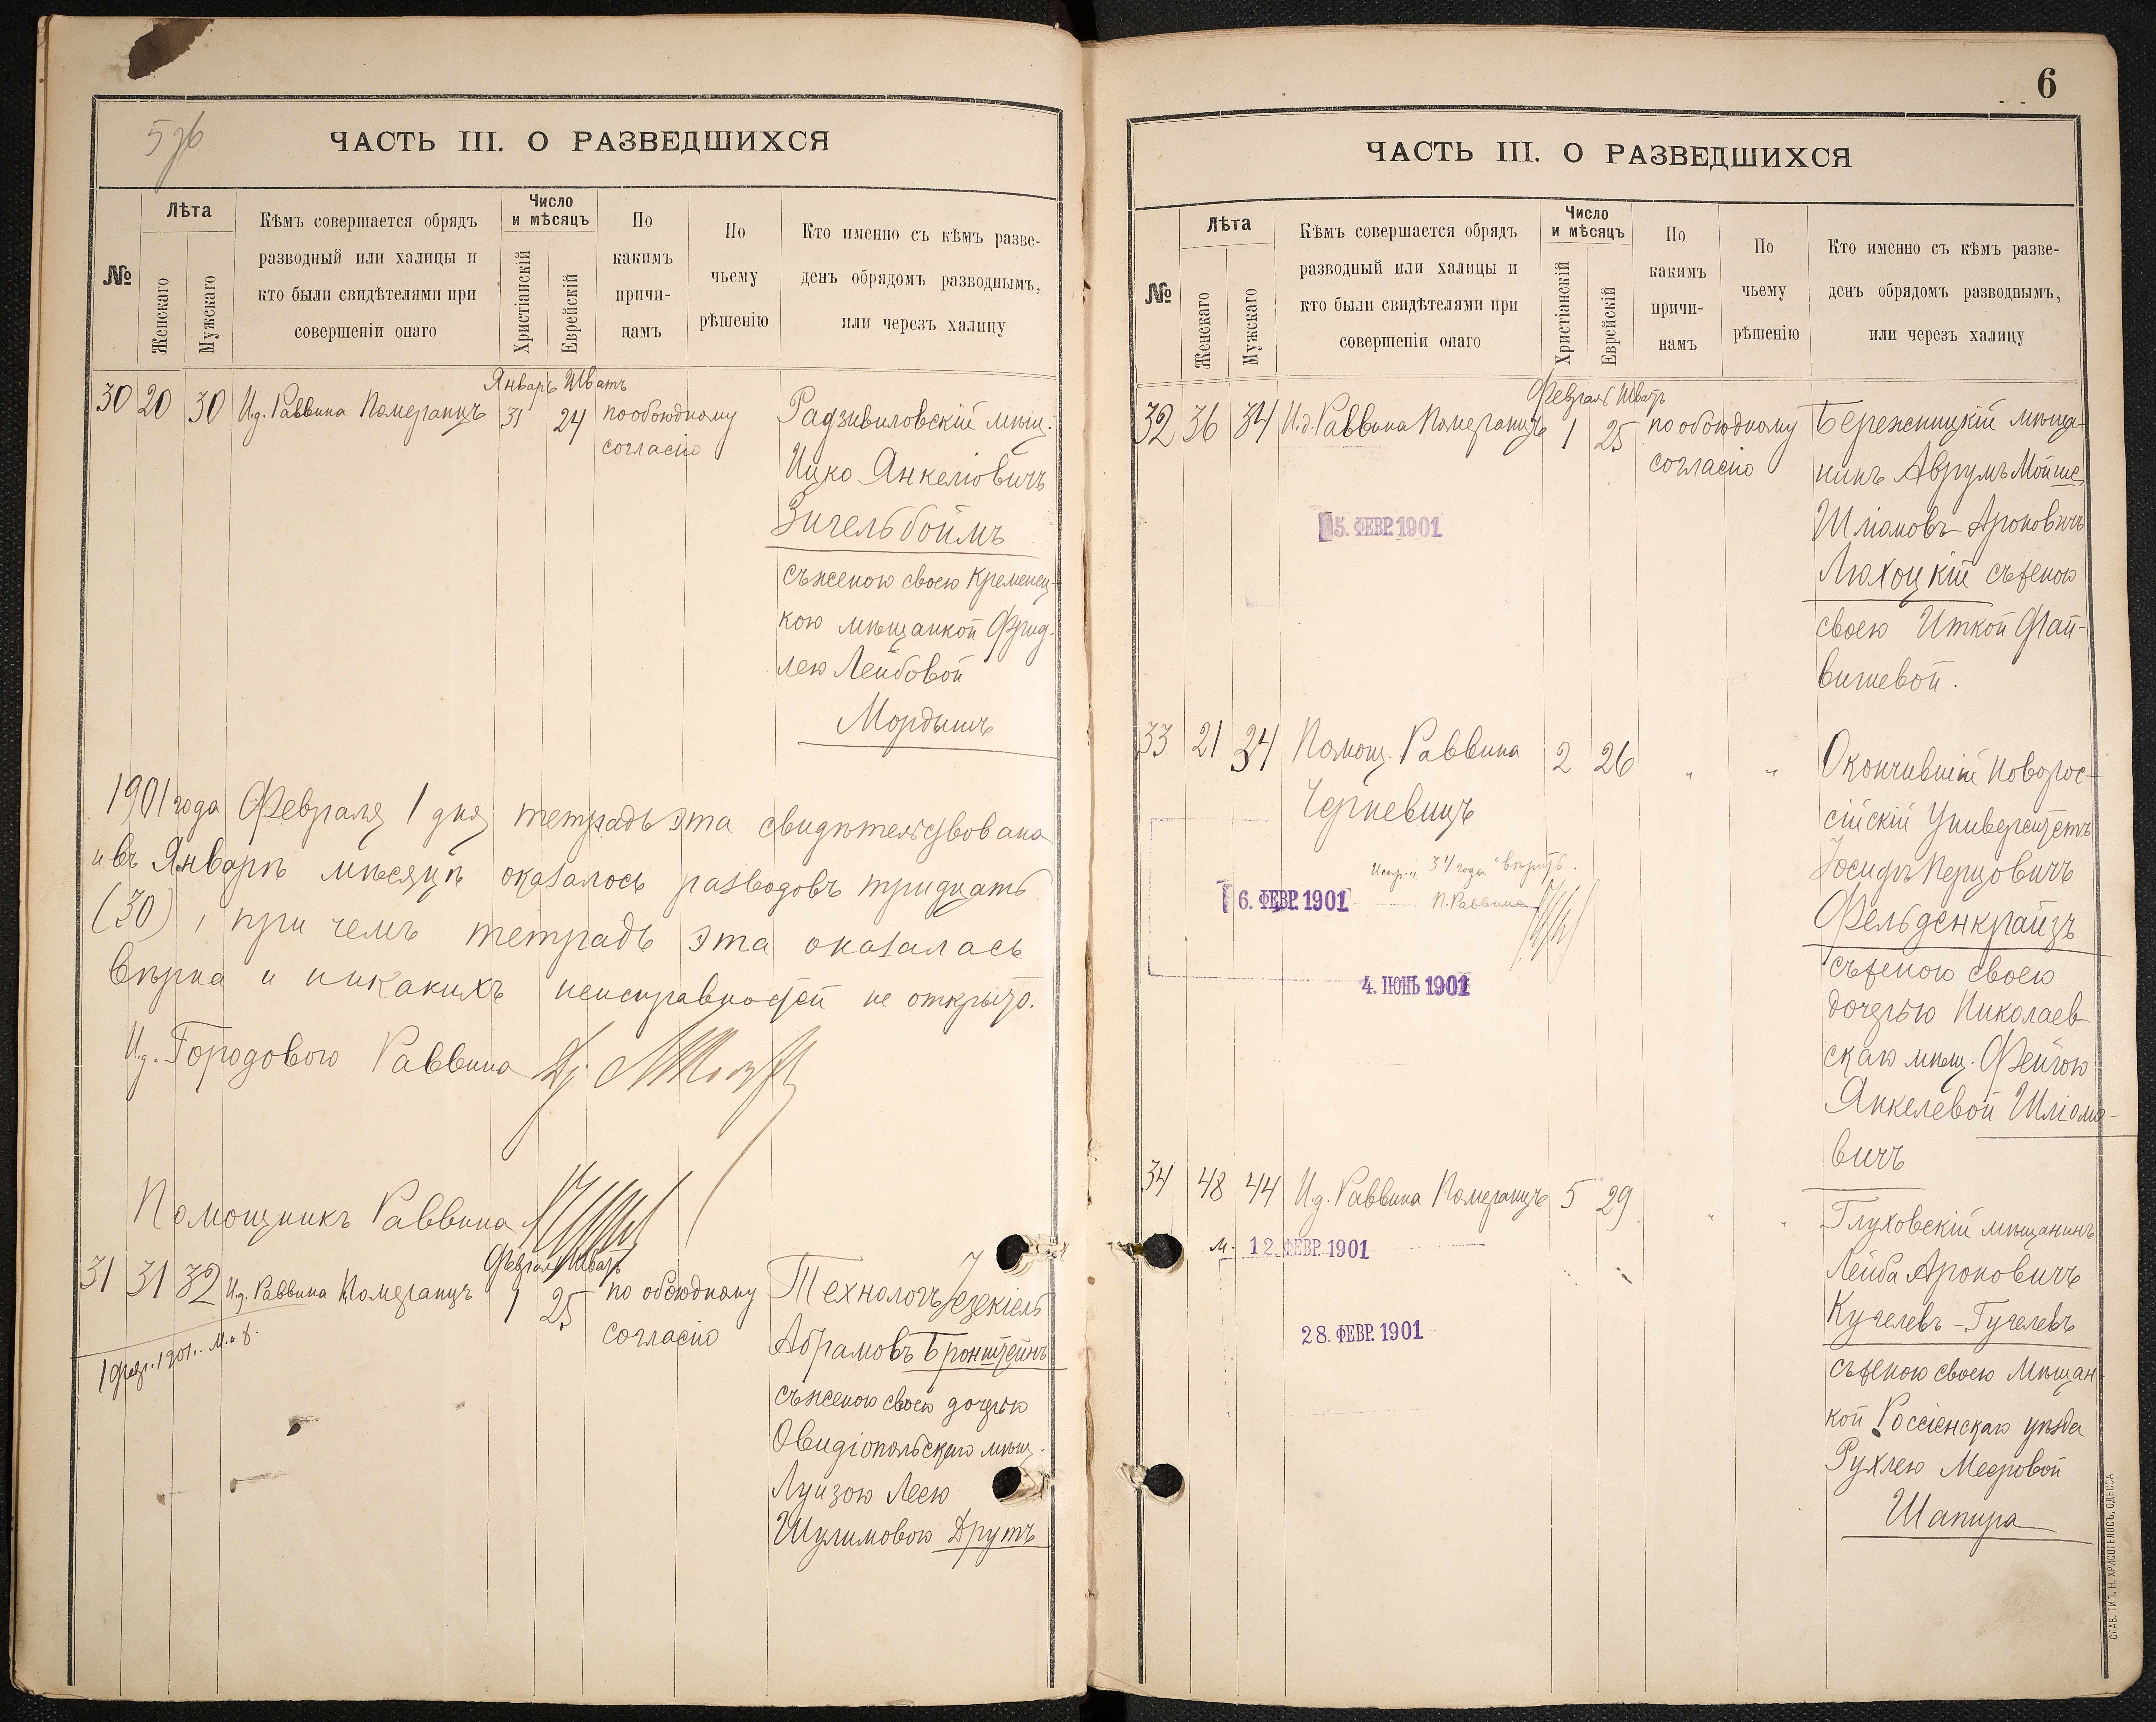 ЧАСТЬ III. О РАЗВЕДШИХСЯ
№
Лѣта
Женскаго
Мужскаго
Кѣмъ совершается обрядъ
разводный или халицы и
кто были свидѣтелями при
совершеніи онаго
Число
и мѣсяцъ
Христіанскій
Еврейскій
По
какимъ
причи-
намъ
По
чьему
рѣшенію
Кто именно съ кѣмъ разве-
денъ обрядомъ разводнымъ,
или черезъ халицу
Январь Шватъ
30 20 30 И.д. Раввина Померанцъ 31 24 по обоюдному
согласію
Радзивиловскій мѣщ.
Ицко Янкеліовичъ
Зигельбоймъ
съ женою своею Кременец-
кою мѣщанкой Фрид-
лею Лейбовой
Мордышъ
1901 года Февраля 1 дня тетрадь эта свидѣтельствована
и въ Январѣ мѣсяцѣ оказалось разводовъ тридцать
(30), при чемъ тетрадь эта оказалась
вѣрна и никакихъ неисправностей не открыто.
И.д. Городового Раввина
Помощникъ Раввина
Февраль Шватъ
31 31 32 И.д. Раввина Померанцъ 1 25 по обоюдному
согласію
1 февр. 1901.
Технологъ Іезекіель
Абрамовъ Бронштейнъ
съ женою своею дочерью
Овидіопольскаго мѣщ.
Луизою Леею
Шулимовою Друтъ
6
ЧАСТЬ III. О РАЗВЕДШИХСЯ
№
Лѣта
Женскаго
Мужскаго
Кѣмъ совершается обрядъ
разводный или халицы и
кто были свидѣтелями при
совершеніи онаго
Число
и мѣсяцъ
Христіанскій
Еврейскій
По
какимъ
причи-
намъ
По
чьему
рѣшенію
Кто именно съ кѣмъ разве-
денъ обрядомъ разводнымъ,
или черезъ халицу
Февраль Шватъ
32 36 34 И.д. Раввина Померанцъ 1 25 по обоюдному
согласію
Бережницкій мѣща-
нинъ Аврумъ Мойше
Шліомовъ-Ароновичъ
Люхоцкій съ женою
своею Иткой Фай-
вишевой.
5. ФЕВР. 1901
33 21 34 Помощ. Раввина 2 26 " "
Черневицъ
Окончившій Новорос-
сійскій Университетъ
Іосифъ Перцовичъ
Фельденкрайзъ
съ женою своею
дочерью Николаев-
скаго мѣщ. Фейгою
Янкелевой Шліомо-
вичъ
Испр. "34 года" вѣрить.
П. Раввина
6. ФЕВР. 1901
4. ІЮНЬ 1901
34 48 44 И.д. Раввина Померанцъ 5 29 " "
Глуховскій мѣщанинъ
Лейба Ароновичъ
Кугелевъ-Гугелевъ
съ женою своею мѣщан-
кой Россіенскаго уѣзда
Рухлею Мееровой
Шапира
М. 12. ФЕВР. 1901
28. ФЕВР. 1901
СЛАВ. ТИП. Н. ХРИСОГЕЛОСЪ, ОДЕССА